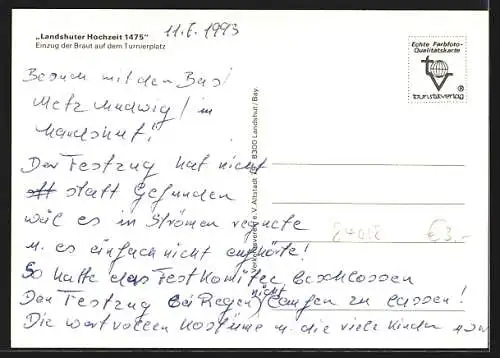 „Landshuter Hochzeit 1475"
Einzug der Braut auf dem Turnierplatz
11.I. 1993
Echte Farbfoto-
Qualitätskarte
tv
touristaverlag ®
Besuch mit den Bus!
Metz Ludwig! in
Landshut!
Der Festzug hat nicht
statt Gefunden
wäl es in Strömen regnete
u. es einfach nicht aufhörte!
So hatte das Festkomitee beschlossen
Den Festzug bei Regen nicht laufen zu lassen!
Die wertvollen Kostüme u. die viele Kinder usw
Verkehrsverein e. V. Altstadt 8300 Landshut/Bay.
€3,-